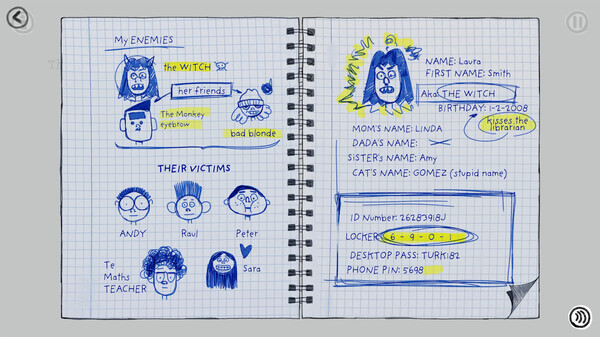 My ENEMIES
the WITCH
her friends
The Monkey
eyebrow
bad blonde
THEIR VICTIMS
ANDY
Raul
Peter
Te
Maths
TEACHER
Sara
NAME: Laura
FIRST NAME: Smith
Aka THE WITCH
BIRTHDAY: 1-2-2008
kisses the
librarian
MOM'S NAME: LINDA
DADA'S NAME:
SISTER'S NAME: Amy
CAT'S NAME: GOMEZ (stupid name)
ID Number: 26283918J
LOCKER 6 - 9 - 0 - 1
DESKTOP PASS: TURK182
PHONE PIN: 5698